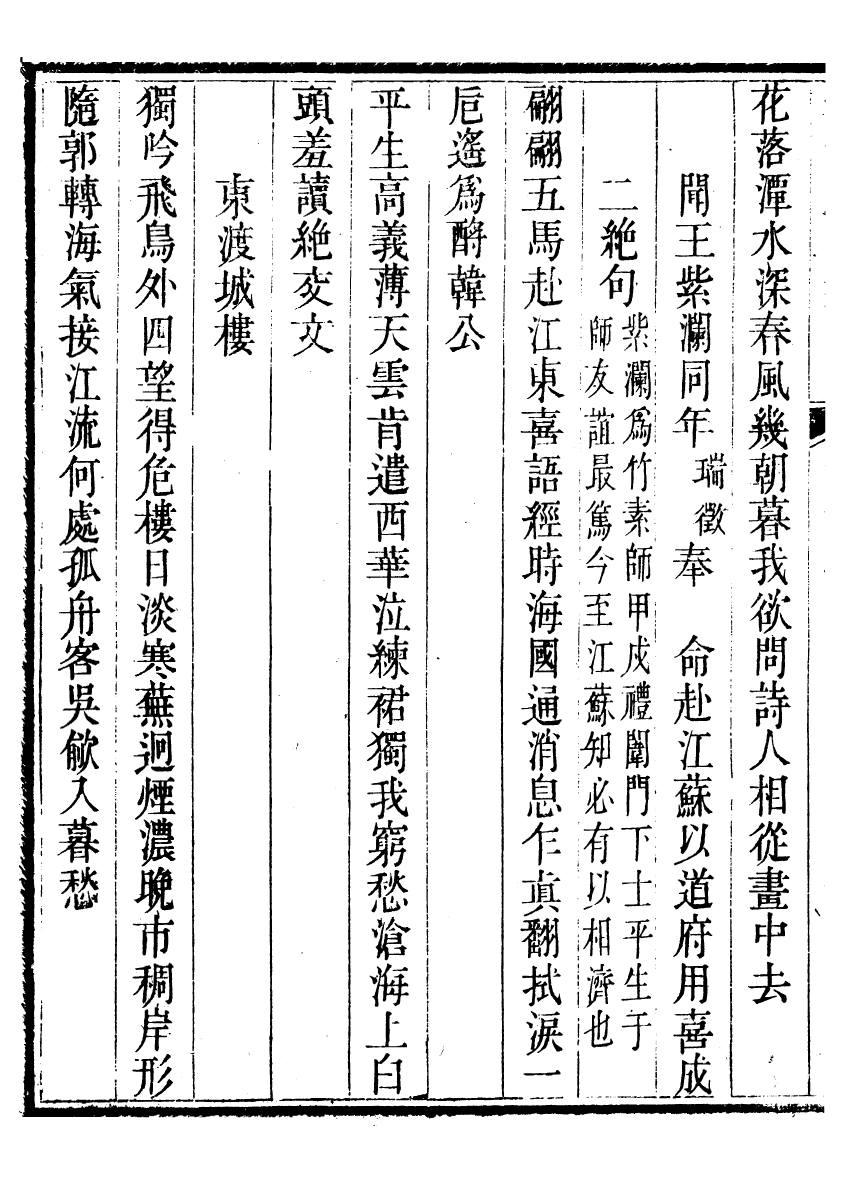 花落潭水深春風幾朝暮我欲問詩人相從畫中去
聞王紫瀾同年瑞徵奉　命赴江蘇以道府用喜成
二絕句紫瀾爲竹素師甲戍禮闈門下士平生于
師友誼最篤今至江蘇知必有以相濟也
翩翩五馬赴江東喜語經時海國通消息乍眞翻拭淚一
卮遙爲酹韓公
平生高義薄天雲肯遣西華泣練裙獨我窮愁滄海上白
頭羞讀絕交文
東渡城樓
獨吟飛鳥外四望得危樓日淡寒蕪迥煙濃晚市稠岸形
隨郭轉海氣接江流何處孤舟客吳歈入暮愁